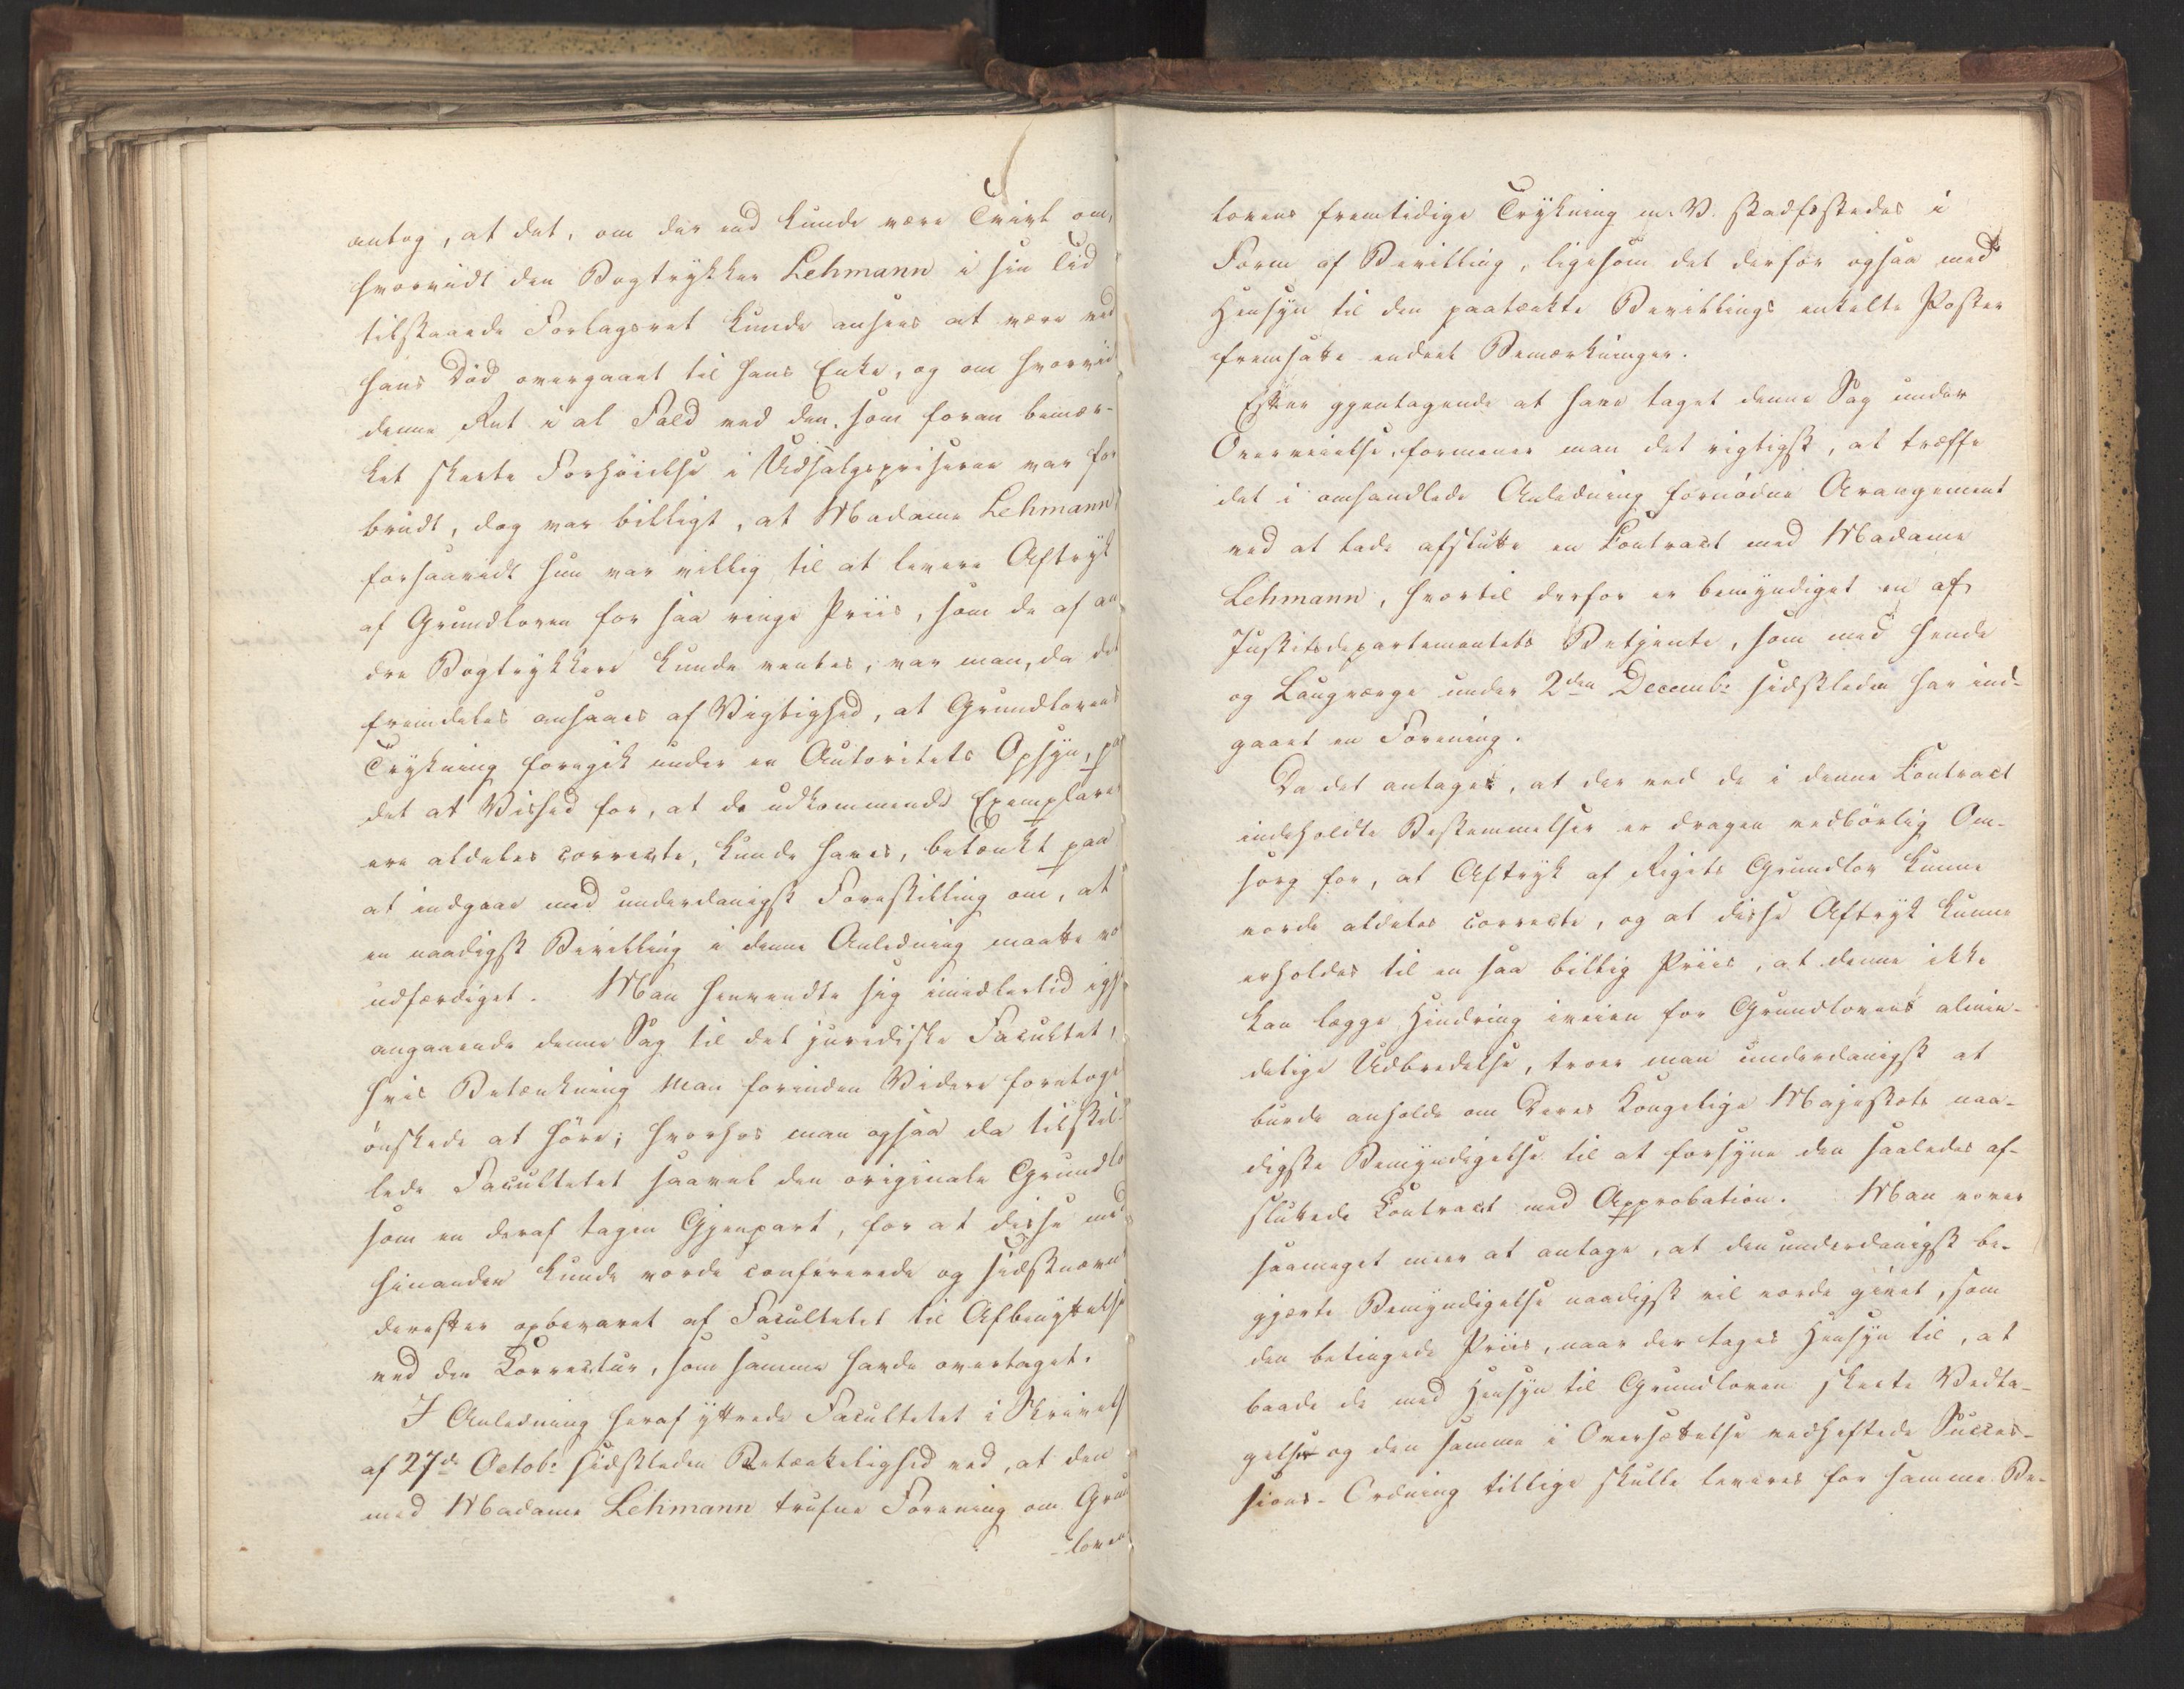 antog, at det, om der end kunde være Tvivl om,
hvorvidt den Bogtrykker Lehmann i sin Tid
tilstaaede Forlagsret kunde ansees at være ved
hans Død overgaaet til hans Enke, og om hvorvidt
denne Ret i al Fald ved den, som foran bemær-
ket skeete Forhöielse i Udsalgspriserne var for
brudt, dog var billigt, at Madame Lehmann,
forsaavidt hun var villig til at levere Aftryk
af Grundloven for saa ringe Priis, som de af an
dre Bogtrykkere kunde ventes, var man, da det
fremdeles ansaaes af Vigtighed, at Grundlovens
Trykning foregik under en Autoritets Opsyn, paa
det at Vished for, at de udkommende Exemplarer
ere aldeles correcte, kunde haves, betænkt paa
at indgaae med underdanigst Forestilling om, at
en naadigst Bevilling i denne Anledning maatte vo
udfærdiget. Man henvendte sig imidlertid igj
angaaende denne Sag til det juridiske Facultet,
hvis Betænkning man forinden Videre foretoges
önskede at höre; hvorhos man ogsaa da tilstil-
lede Facultetet saavel den originale Grundlo
som en deraf tagen Gjenpart, for at disse med
hinanden kunde vorde confererede og sidstnævn
derefter opbevaret af Facultetet til Afbenyttelse
ved den Correctur, som samme havde overtaget.
I Anledning heraf yttrede Facultetet i Skrivelse
af 27de Octobr sidstleden Betænkelighed ved, at den
med Madame Lehmann trufne Forening om Grund
-loven
lovens fremtidige Trykning m. V. stadfæstedes i
Form af Bevilling, ligesom det derfor ogsaa med
Hensyn til den paatænkte Bevillings enkelte Poster
fremsatte endeel Bemærkninger.
Efter gjentagende at have taget denne Sag under
Overveielse, formener man det rigtigst, at træffe
det i omhandlede Anledning fornödne Arangement
ved at lade afslutte en Contract med Madame
Lehmann, hvortil derfor er bemyndiget en af
Justitsdepartementets Betjente, som med hende
og Laugværge under 2den Decembr sidstleden har ind-
gaaet en Forening.
Da det antages, at der ved de i denne Contract
indeholdte Bestemmelser er dragen vedbörlig Om-
sorg for, at Aftryk af Rigets Grundlov kunne
vorde aldeles correcte, og at disse Aftryk kunne
erholdes til en saa billig Priis, at denne ikke
kan lægge Hindring iveien for Grundlovens almin-
delige Udbredelse, troer man underdanigst at
burde anholde om Deres Kongelige Majestæts naa-
digste Bemyndigelse til at forsyne den saaledes af-
sluttede Contract med Approbation. Man vover
saameget meer at antage, at den underdanigst be-
gjærte Bemyndigelse naadigst vil vorde givet, som
den betingede Priis, naar der tages Hensyn til, at
baade de med Hensyn til Grundloven skeete Vedta-
gelser og den samme i Oversættelse vedheftede Succes-
sions-Ordning tillige skulle leveres for samme Be-